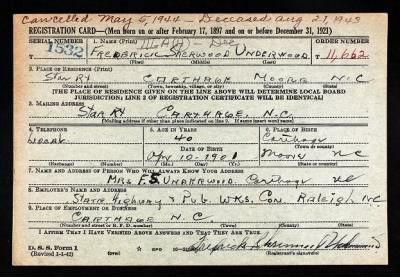 Cancelled May 5, 1944 - Deceased Aug 21, 1943
REGISTRATION CARD—(Men born on or after February 17, 1897 and on or before December 31, 1921)
SERIAL NUMBER 1. NAME (Print) ORDER NUMBER
1532 FREDERICK SHERWOOD UNDERWOOD 11,662
(First) (Middle) (Last)
2. PLACE OF RESIDENCE (Print)
Star Rt CARTHAGE MOORE N.C.
(Number and street) (Town, township, village, or city) (County) (State)
[THE PLACE OF RESIDENCE GIVEN ON THE LINE ABOVE WILL DETERMINE LOCAL BOARD
JURISDICTION; LINE 2 OF REGISTRATION CERTIFICATE WILL BE IDENTICAL]
3. MAILING ADDRESS
Star Rt CARTHAGE, N.C.
[Mailing address if other than place indicated on line 2. If same insert word same]
4. TELEPHONE 5. AGE IN YEARS 6. PLACE OF BIRTH
40 Carthage
DATE OF BIRTH (Town or county)
Apr 10 - 1901 Moore NC
(Exchange) (Number) (Mo.) (Day) (Yr.) (State or country)
7. NAME AND ADDRESS OF PERSON WHO WILL ALWAYS KNOW YOUR ADDRESS
MRS F.S. UNDERWOOD. Carthage NC
8. EMPLOYER'S NAME AND ADDRESS
State Highway & Pub. WKS. Com. Raleigh N.C
9. PLACE OF EMPLOYMENT OR BUSINESS
CARTHAGE N.C.
(Number and street or R. F. D. number) (Town) (County) (State)
I AFFIRM THAT I HAVE VERIFIED ABOVE ANSWERS AND THAT THEY ARE TRUE.
D. S. S. Form 1 Frederick Sherwood Underwood
(Revised 1-1-42) (Registrant's signature)